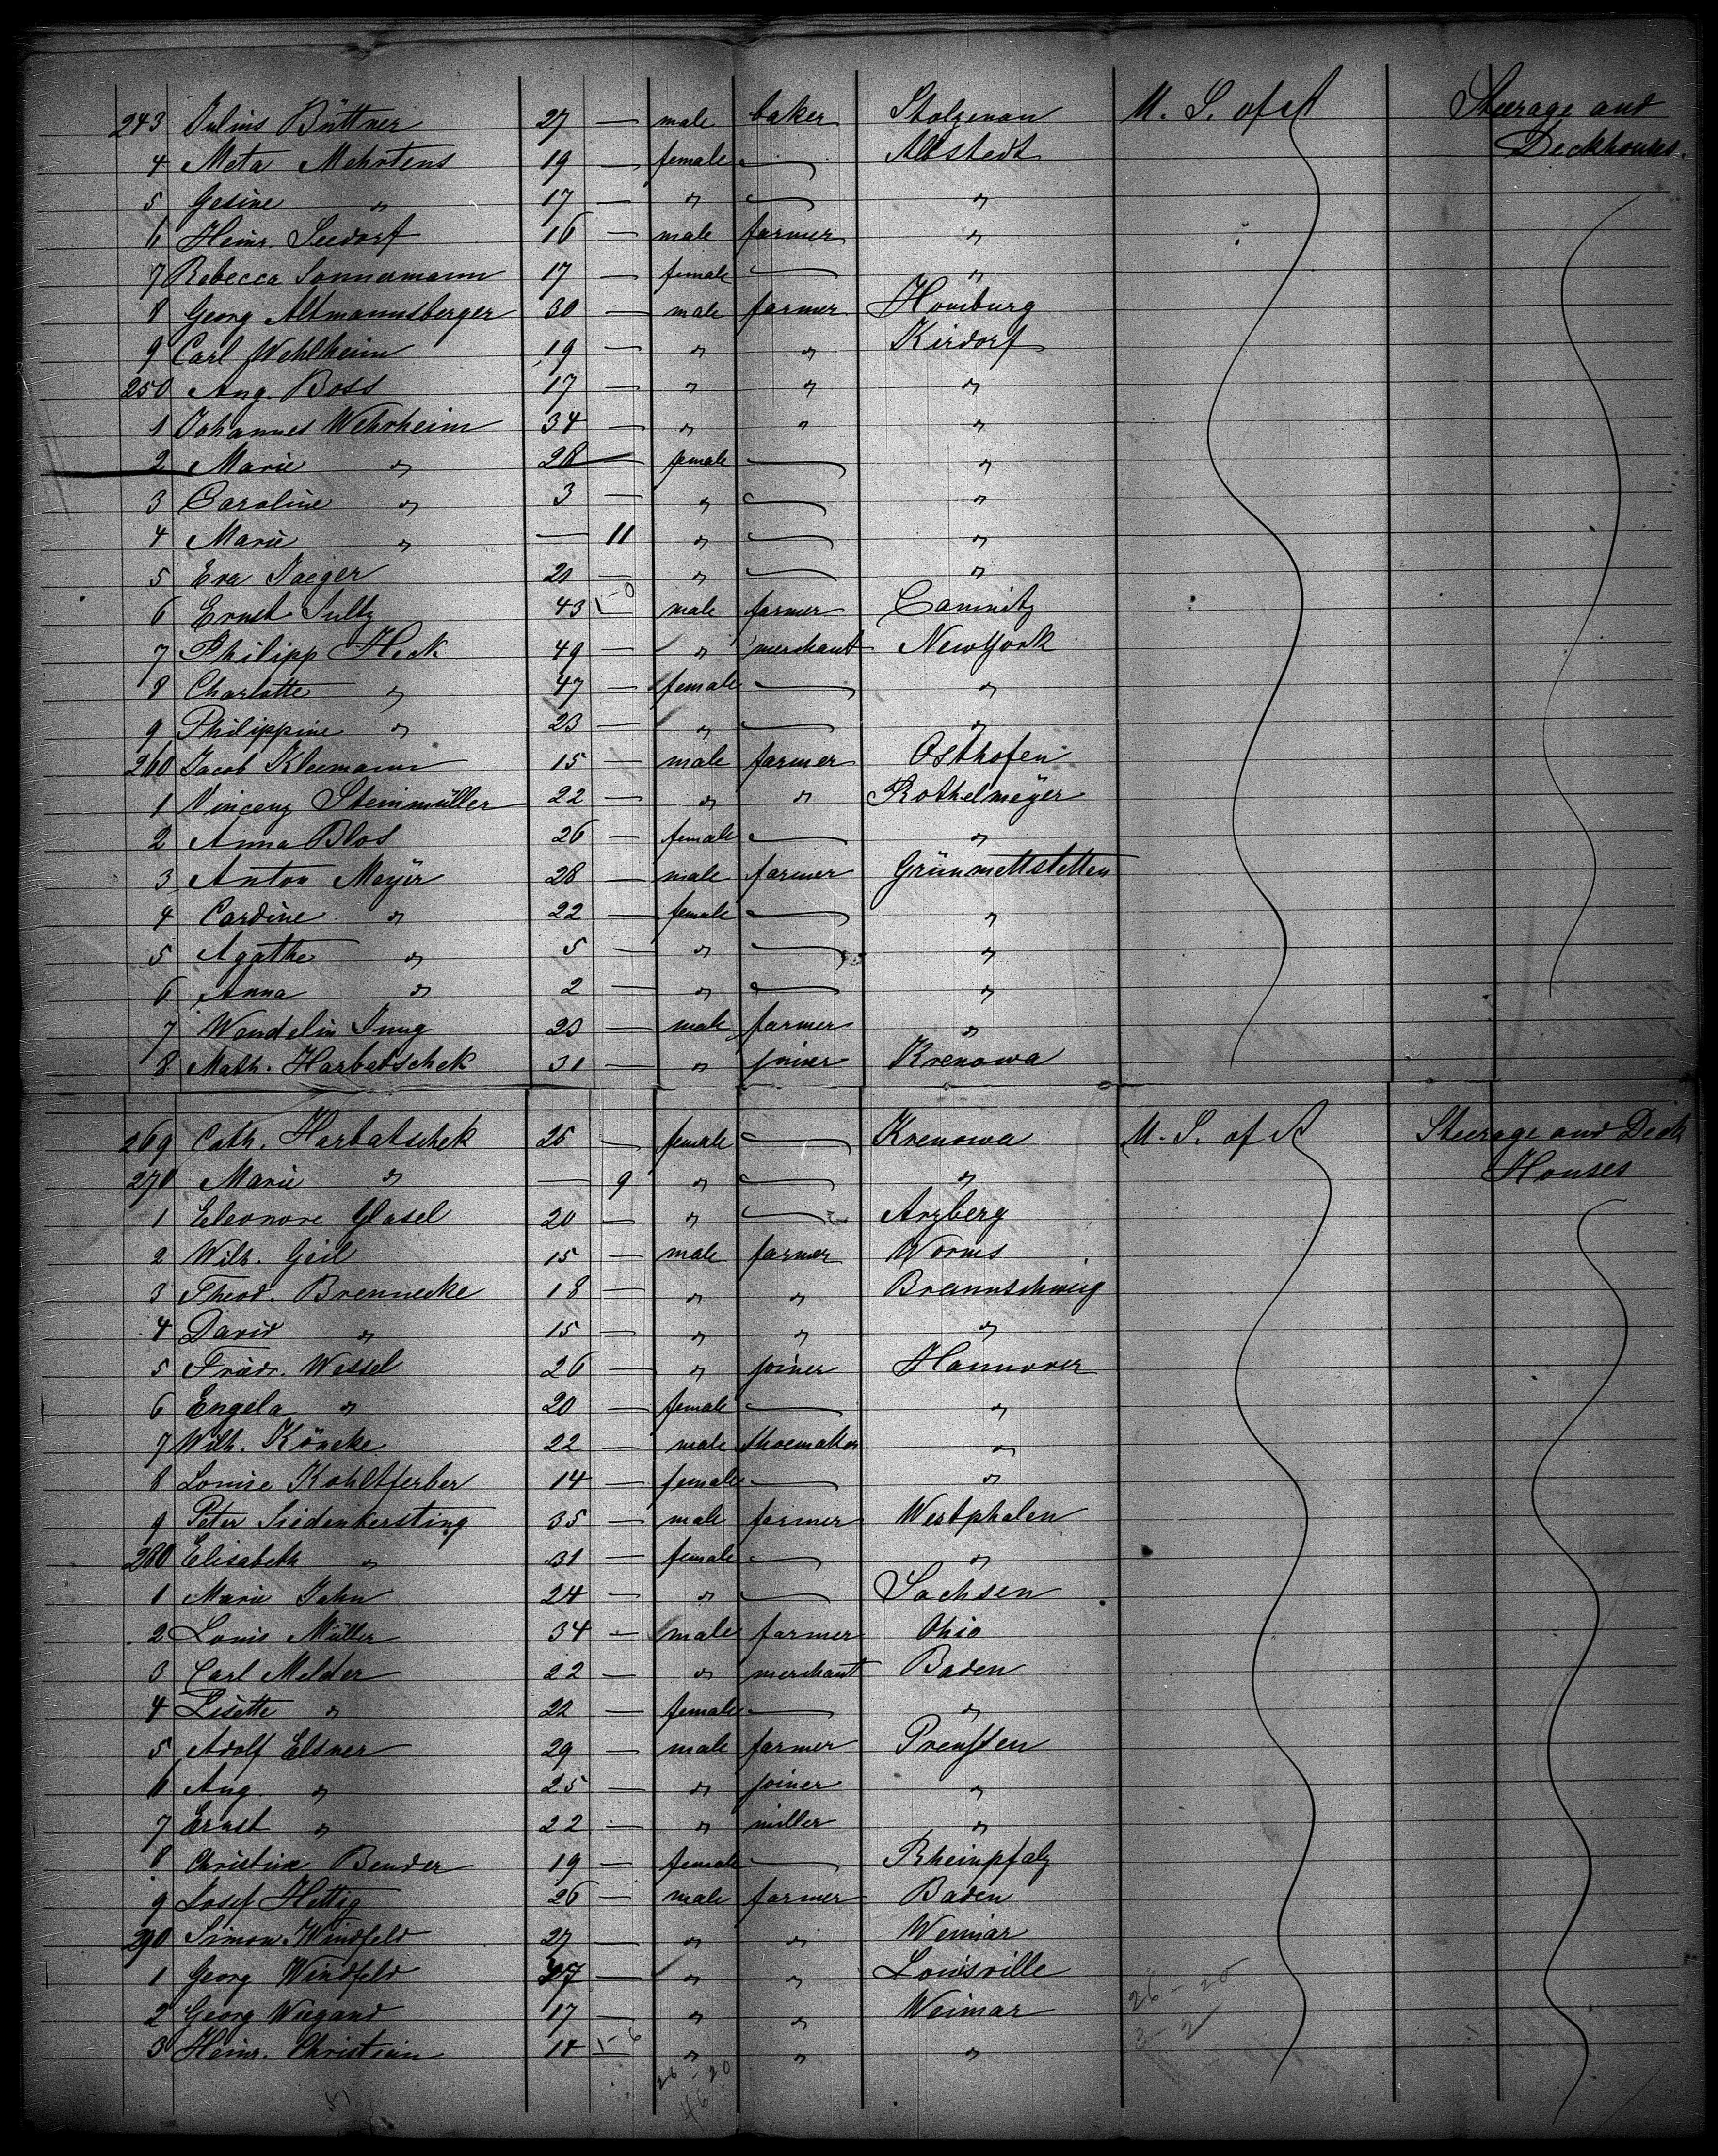 243 Julius Büttner 27 — male baker Stolzenau U. S. of A Steerage and
4 Meta Mehrtens 19 — female — Altstedt Deckhouses.
5 Gesine " 17 — " — "
6 Heinr. Seedorf 16 — male farmer "
7 Rebecca Sannemann 17 — female — "
8 Georg Altmannsberger 30 — male farmer Homburg
9 Carl Wehlheim 19 — " " Kirdorf
250 Aug. Boss 17 — " " "
1 Johannes Wehrheim 34 — " " "
2 Marie " 28 — female — "
3 Caroline " 3 — " — "
4 Marie " — 11 " — "
5 Eva Jaeger 21 — " — "
6 Ernst Sultz 43 — male farmer Caminitz
7 Philipp Heck 49 — " merchant NewYork
8 Charlotte " 47 — female — "
9 Philippine " 23 — " — "
260 Jacob Kleemann 15 — male farmer Osthofen
1 Vincenz Steinmüller 22 — " " Rothelmeÿer
2 Anna Blos 26 — female — "
3 Anton Meÿer 28 — male farmer Grünmettstetten
4 Cardine " 22 — female — "
5 Agathe " 5 — " — "
6 Anna " 2 — " — "
7 Wendelin 23 — male farmer "
8 Math. Harbatschek 31 — " joiner Krenowa
269 Cath. Harbatschek 25 — female — Krenowa U. S. of A Steerage and Deck
270 Marie " — 9 " — " Houses
1 Eleonore Glasel 20 — " — Arzberg
2 Wilh. Geil 15 — male farmer Worms
3 Theod. Brennecke 18 — " " Braunschweig
4 David " 15 — " " "
5 Friedr. Wessel 26 — " joiner Hannover
6 Engela " 20 — female — "
7 Wilh. Köneke 22 — male shoemaker "
8 Louise Kohlstferber 14 — female — "
9 Peter Siedenkersting 35 — male farmer Westphalen
280 Elisabeth " 31 — female — "
1 Marie Jahn 24 — " — Sachsen
2 Louis Müller 34 — male farmer Ohio
3 Carl Melder 22 — " merchant Baden
4 Lisette " 22 — female — "
5 Adolf Elsner 29 — male farmer Preußen
6 Aug. " 25 — " joiner "
7 Ernst " 22 — " miller "
8 Christine Bender 19 — female — Rheinpfalz
9 Josef Hettig 26 — male farmer Baden
290 Simon Windfeld 27 — " " Weimar
1 Georg Windfeld 27 — " " Louisville
2 Georg Wiegand 17 — " " Weimar 26-20
3 Heinr. Christian 14 — " " " 3-2
26-20
46
51